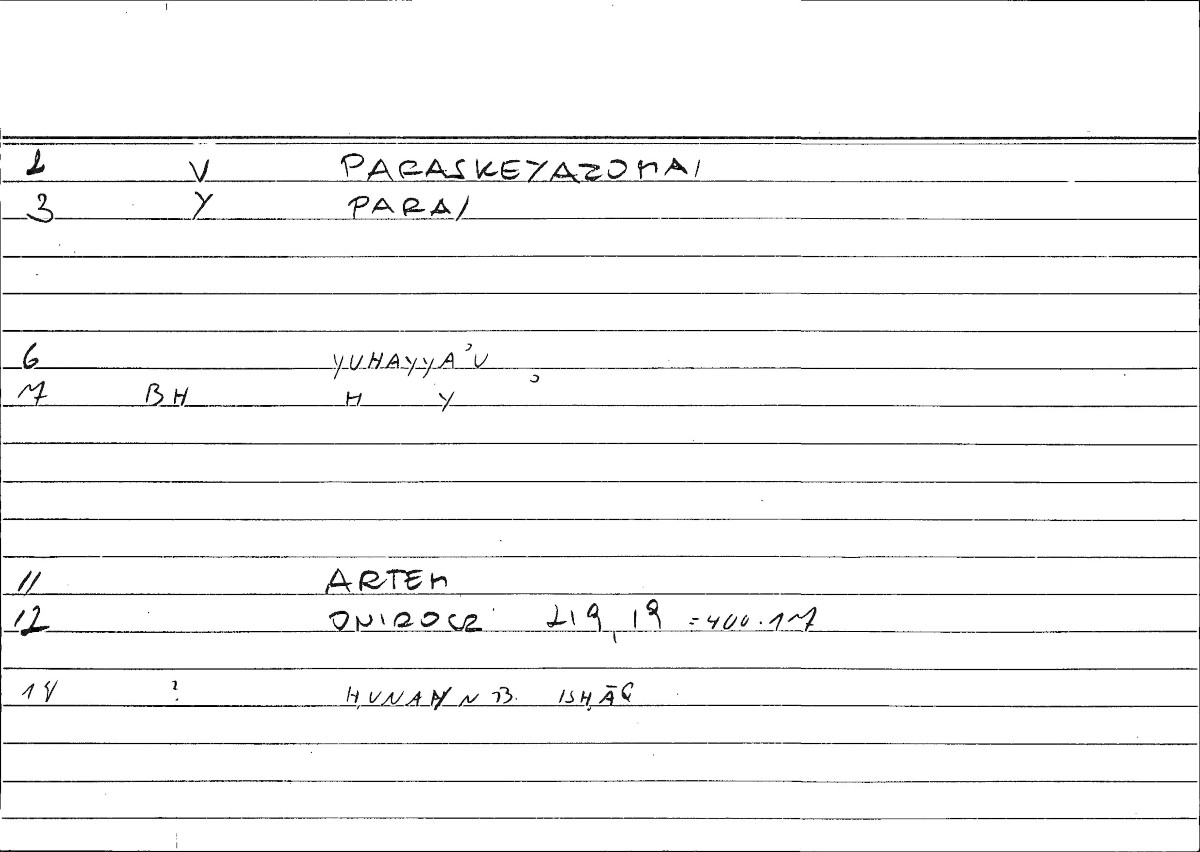 2 V PARASKEYAZOMAI
3 Y PARA/
6 YUHAYYA'U
7 BH H Y '
11 ARTEM
12 ONIROCR 219,19 = 400.17
14 ? ḤUNAYN B. ISḤĀQ